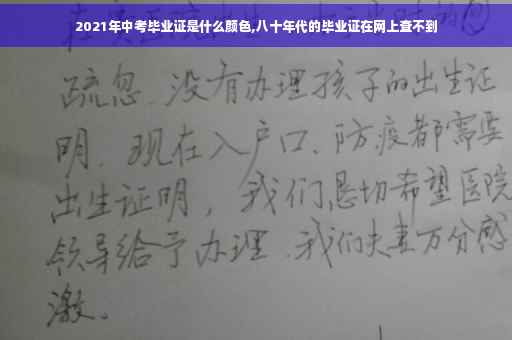 2021年中考毕业证是什么颜色,八十年代的毕业证在网上查不到
疏忽.没有办理孩子的出生证
明.现在入户口、防疫都需要
出生证明,我们恳切希望医院
领导给予办理.我们夫妻万分感
激。